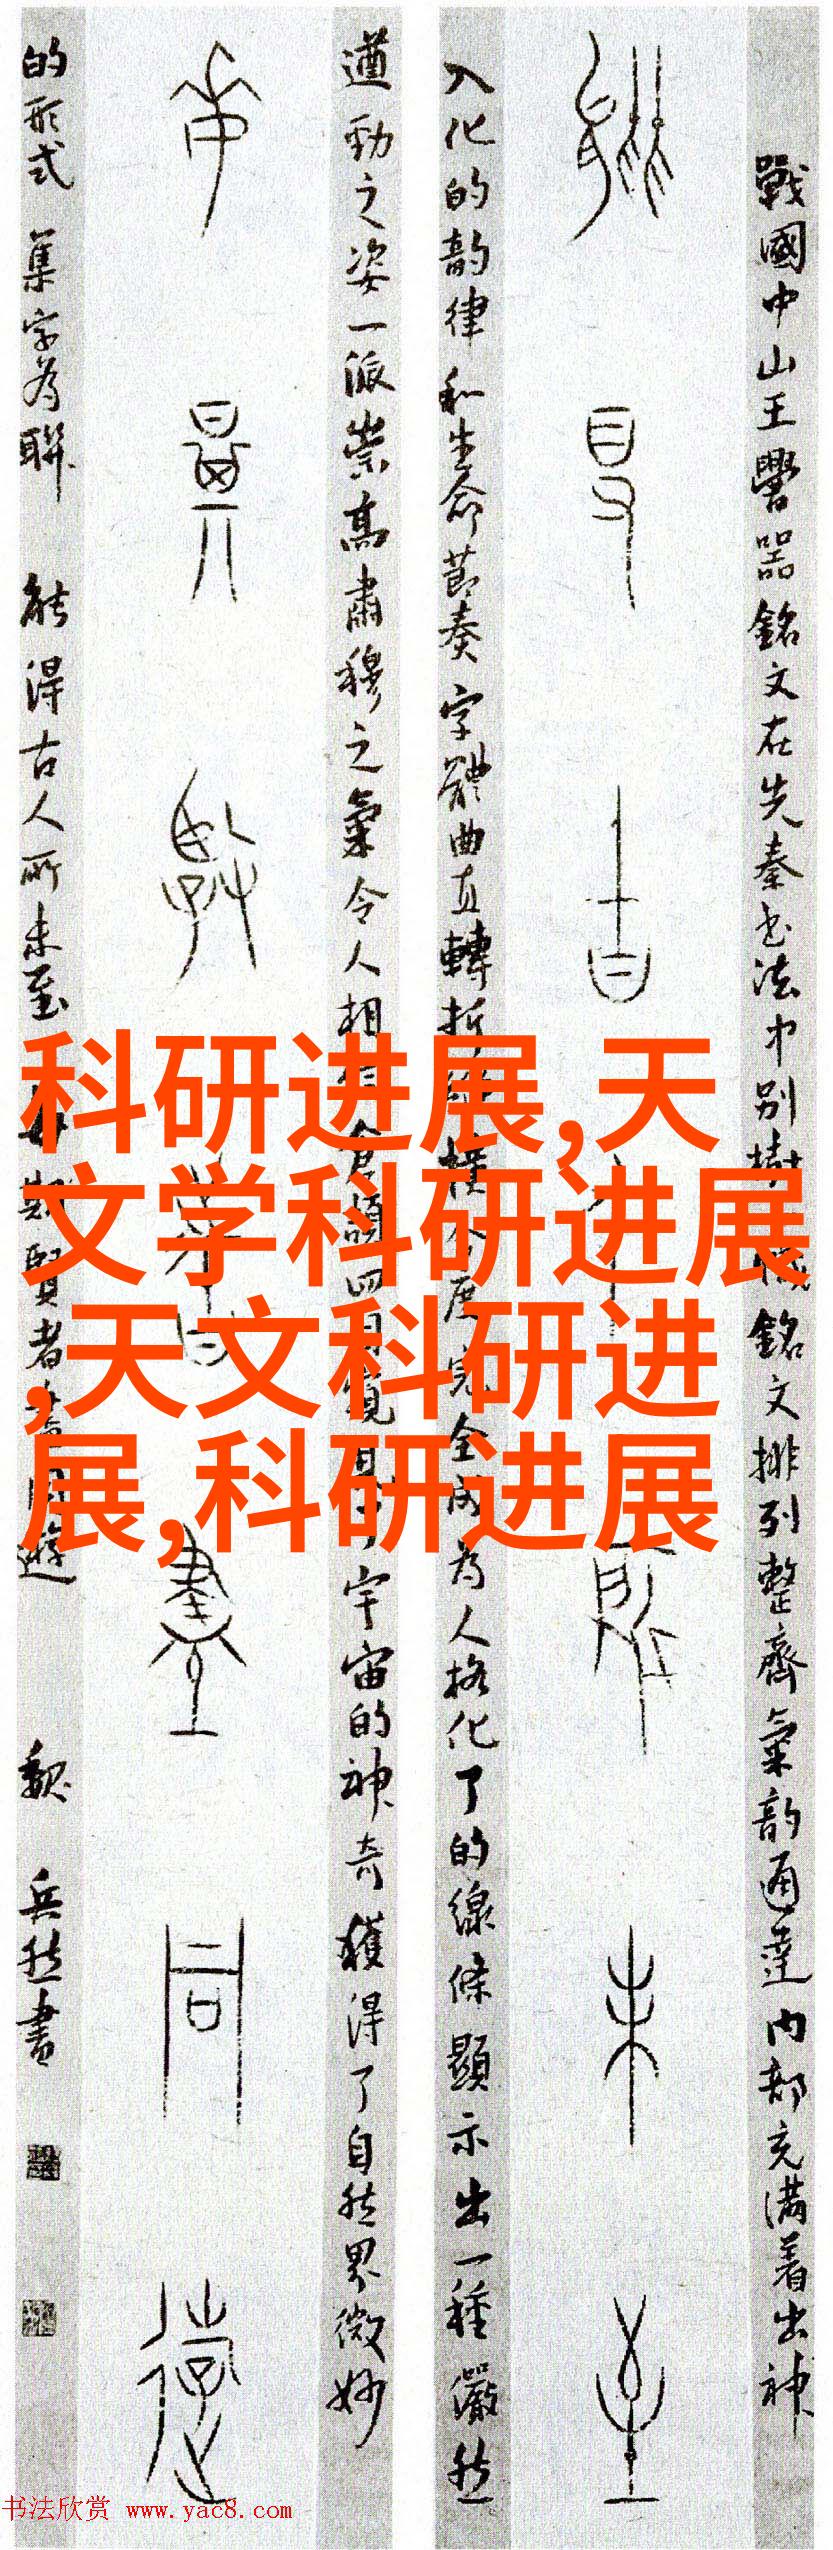 戰國中山王譽器銘文在先秦书法中别樹銘文排列整齊氣韵通達内部充满着出神
能得古人所未至
入化的韵律和生命節奏字體曲直轉折權度完全成为人格化了的線條顯示出一種儼然
遒勁之姿一派崇高肅穆之氣令人相倉頡四目窺宇宙的神奇獲得了自然界微妙
的形式 集字为聯 能得古人所未至 每期賢者同遊 魏 兵然書
科研进展,天
文学科研进展
,天文科研进
展,科研进展
书法欣赏 www.yac8.com